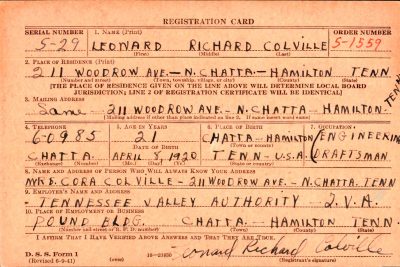 REGISTRATION CARD
SERIAL NUMBER 1. NAME (Print) ORDER NUMBER
S-29 LEONARD RICHARD COLVILLE S-1559
(First) (Middle) (Last)
2. PLACE OF RESIDENCE (Print)
211 WOODROW AVE.- N. CHATTA.- HAMILTON TENN
(Number and street) (Town, township, village, or city) (County) (State)
[THE PLACE OF RESIDENCE GIVEN ON THE LINE ABOVE WILL DETERMINE LOCAL BOARD
JURISDICTION; LINE 2 OF REGISTRATION CERTIFICATE WILL BE IDENTICAL]
3. MAILING ADDRESS
Same - 211 WOODROW AVE - N. CHATTA - HAMILTON TENN
[Mailing address if other than place indicated on line 2. If same insert word same]
4. TELEPHONE 5. AGE IN YEARS 6. PLACE OF BIRTH 7. OCCUPATION
6-0985 21 CHATTA - HAMILTON (ENGINEERING
DATE OF BIRTH (Town or county)
CHATTA. APRIL 8, 1920 TENN - U.S.A. DRAFTSMAN
(Exchange) (Number) (Mo.) (Day) (Yr.) (State or country)
8. NAME AND ADDRESS OF PERSON WHO WILL ALWAYS KNOW YOUR ADDRESS
MRS. CORA COLVILLE - 211 WOODROW AVE - N. CHATTA. TENN
9. EMPLOYER'S NAME AND ADDRESS
TENNESSEE VALLEY AUTHORITY - T.V.A.
10. PLACE OF EMPLOYMENT OR BUSINESS
POUND BLDG. CHATTA. HAMILTON TENN
(Number and street or R. F. D. number) (Town) (County) (State)
I AFFIRM THAT I HAVE VERIFIED ABOVE ANSWERS AND THAT THEY ARE TRUE.
D. S. S. Form 1 Leonard Richard Colville
(Revised 6-9-41) (over) (Registrant's signature)